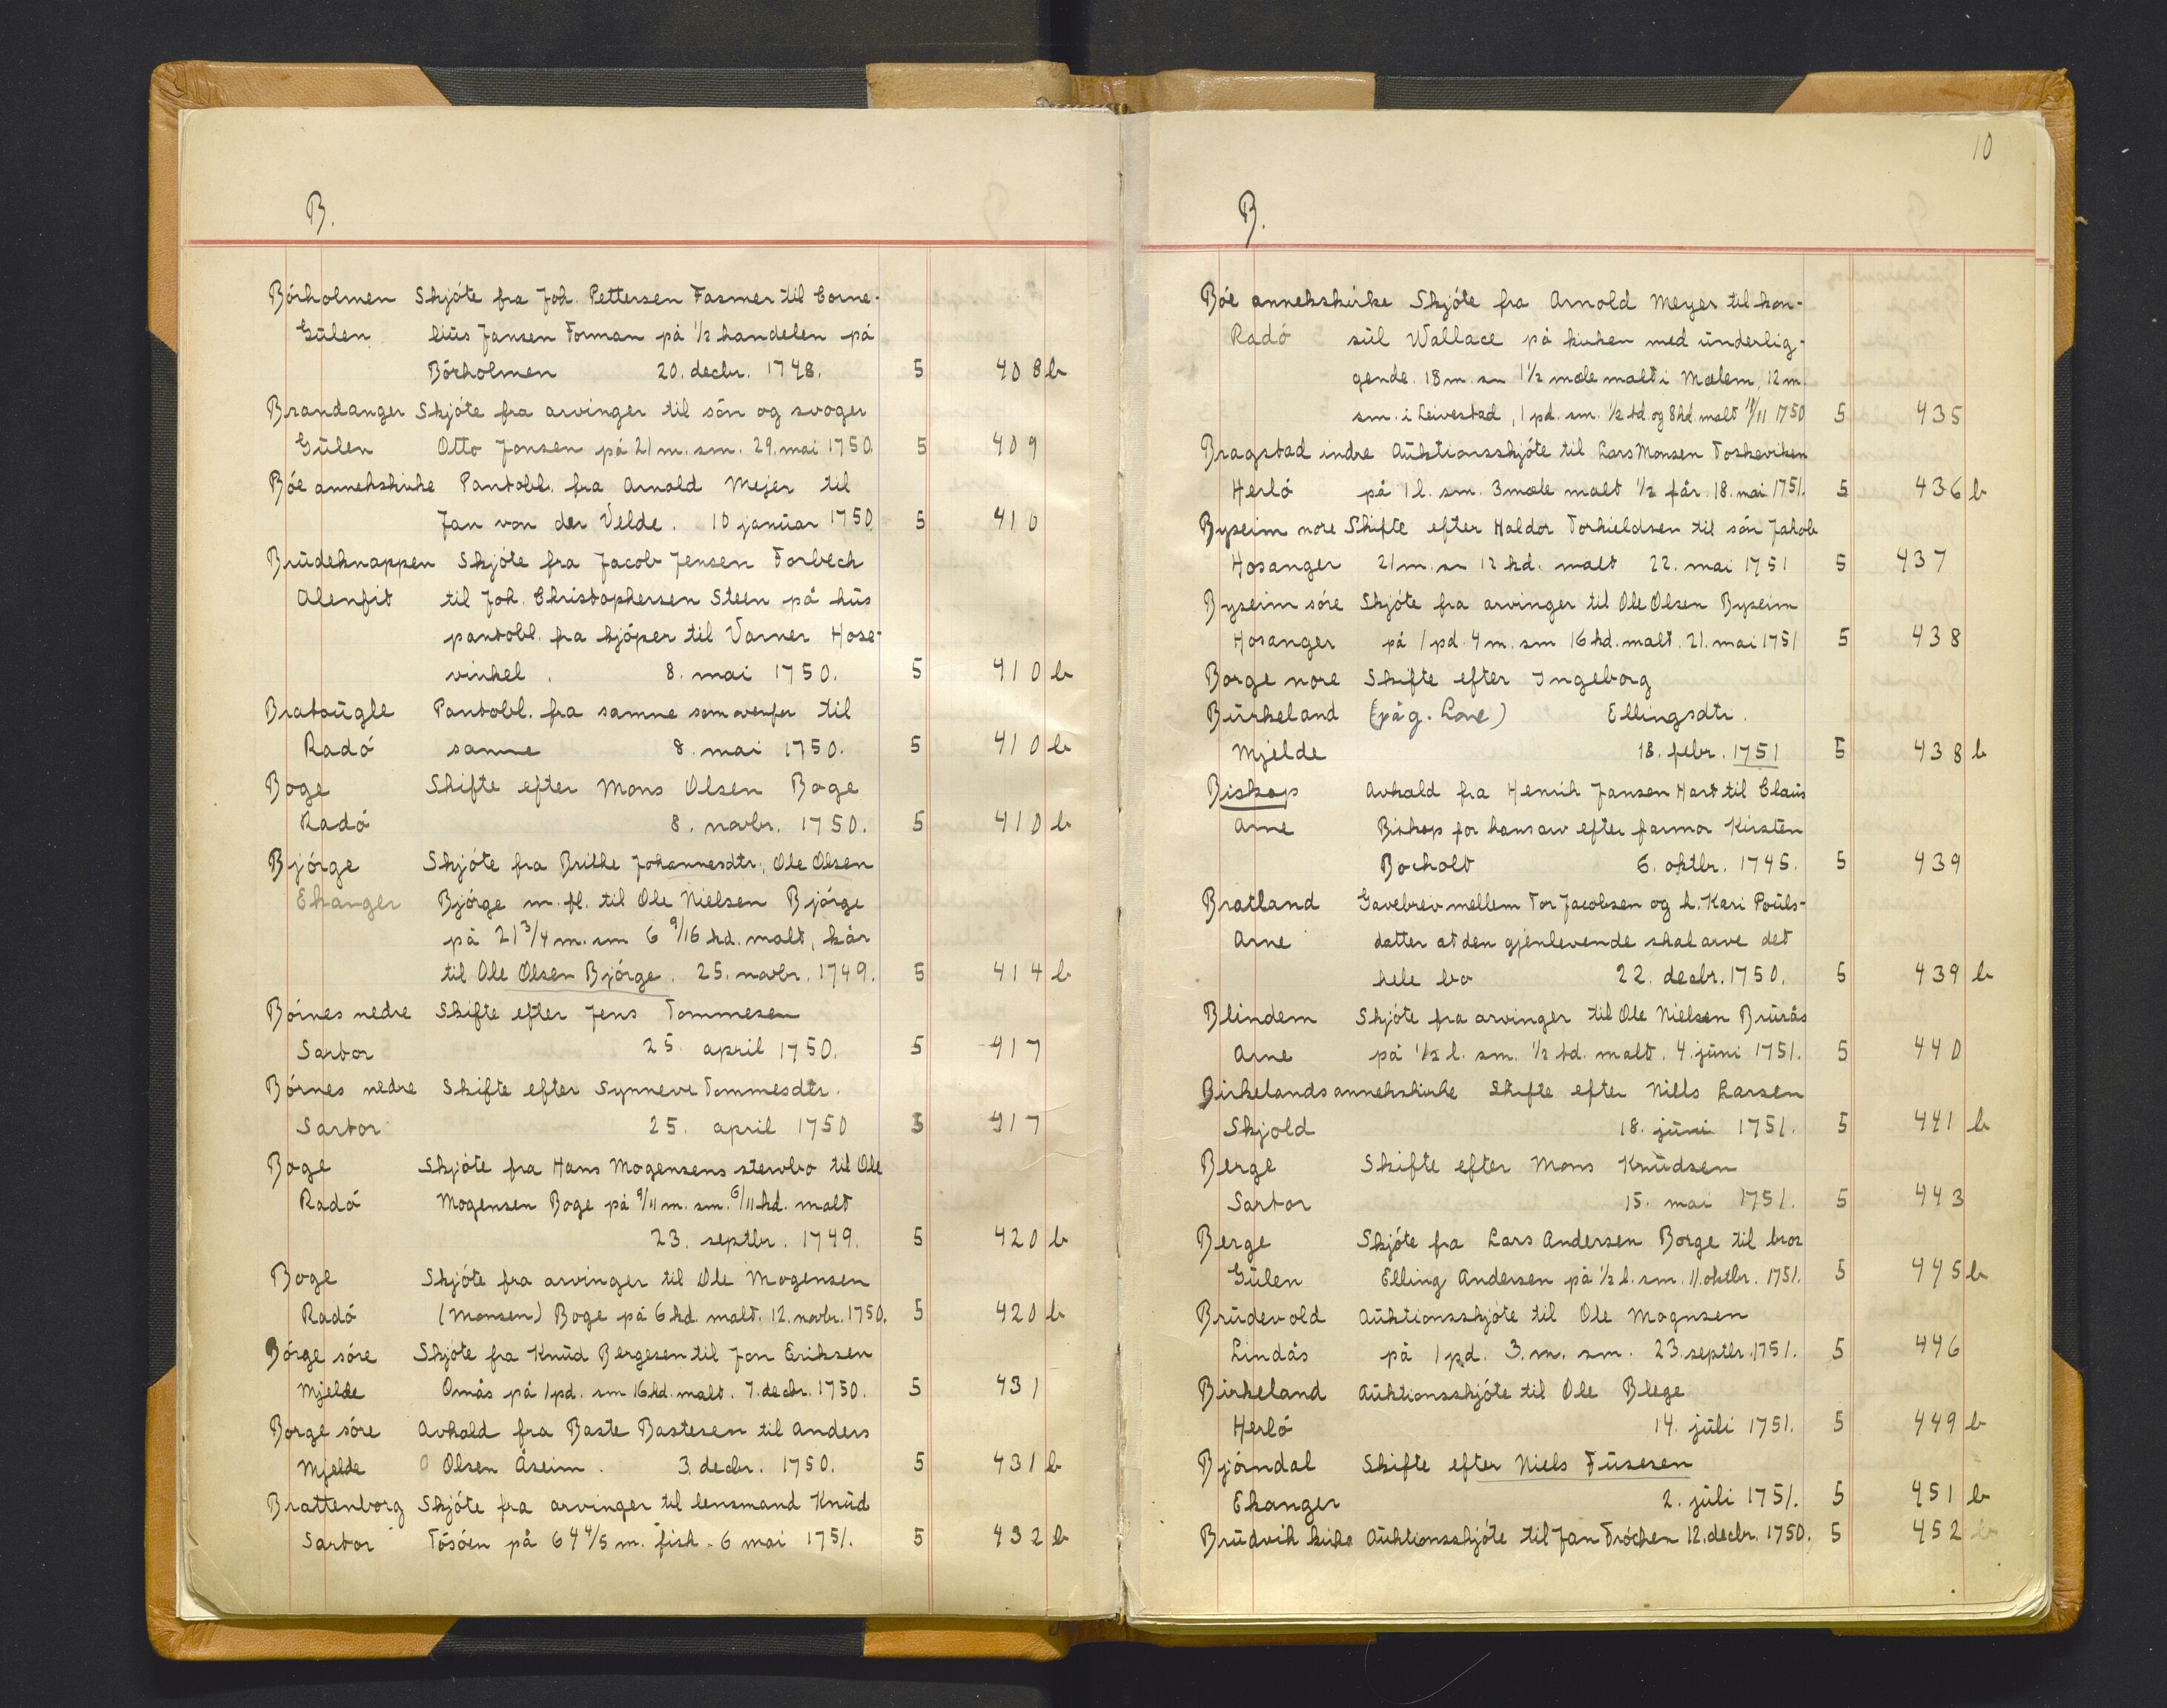 B.
Börholmen Skjóte fra Joh. Pettersen Fasmer til Corne-
Gülen leiüs Jansen Forman på 1/2 handelen på
Börholmen 20. decbr. 1748. 5 408 b
Brandanger Skjóte fra arvinger til són og svoger
Gülen Otto Jansen på 21 m. sm. 29. mai 1750. 5 409
Bóe annekskirke Pantobl. fra Arnold Mejer til
Jan von der Velde. 10 janüar 1750 5 410
Brüdeknappen Skjóte fra Jacob Jensen Forbech
Alenfit til Joh. Christophersen Steen på hüs
pantobl. fra kjóper til Varner Hose-
vinkel. 8. mai 1750. 5 410 b
Bratügle Pantobl. fra samme som ovenfor til
Radó samme 8. mai 1750. 5 410 b
Boge Skifte efter Mons Olsen Boge
Radó 8. novbr. 1750. 5 410 b
Bjórge Skjóte fra Brithe Johannesdtr, Ole Olsen
Ekanger Bjórge m. fl. til Ole Nielsen Bjórge
på 21 3/4 m. sm 6 9/16 hd. malt, kår
til Ole Olsen Bjórge. 25. novbr. 1749. 5 414 b
Bórnes nedre Skifte efter Jens Tommesen
Sartor 25. april 1750. 5 417
Bórnes nedre Skifte efter Synneve Tommesdtr.
Sartor 25. april 1750 5 417
Boge Skjóte fra Hans Mogensens stervbo til Ole
Radó Mogensen Boge på 9/11 m. sm. 6/11 hd. malt
23. septbr. 1749. 5 420 b
Boge Skjóte fra arvinger til Ole Mogensen
Radó (Monsen) Boge på 6 hd. malt. 12. novbr. 1750. 5 420 b
Börge sóre Skjóte fra Knüd Bergesen til Jon Eriksen
Mjelde Omås på 1 pd. sm 16 hd. malt. 7. decbr. 1750. 5 431
Borge sóre Avkald fra Baste Bastesen til Anders
Mjelde Olsen Åseim. 3. decbr. 1750. 5 431 b
Brattenborg Skjóte fra arvinger til lensmand Knüd
Sartor Tösóen på 64 4/5 m. fisk. 6 mai 1751. 5 432 b
10
B.
Bóe annekskirke Skjóte fra Arnold Meyer til kon-
Radó sül Wallace på kirken med ünderlig-
gende. 18 m. sm 1 1/2 mæle malt i Mælem, 12 m.
sm. i Leiverstad, 1 pd. sm. 1/2 td. og 8 hd. malt 11/11 1750 5 435
Bragstad indre Aüktionsskjóte til Lars Monsen Toskeviken
Herló på 1 l. sm. 3 mæle malt 1/2 får. 18. mai 1751. 5 436 b
Byseim nore Skifte efter Haldor Torkieldsen til són Jakob
Hosanger 21 m. sm 12 hd. malt 22. mai 1751 5 437
Byseim sóre Skjóte fra arvinger til Ole Olsen Byseim
Hosanger på 1 pd. 4 m. sm 16 hd. malt. 21. mai 1751 5 438
Borge nore Skifte efter Ingeborg
Bürkeland (på g. Lone) Ellingsdtr.
Mjelde 18. febr. 1751 5 438 b
Biskop Avkald fra Henrik Jansen Hart til Claüs
Arne Biskop for hans arv efter farmor Kirsten
Bocholt 6. oktbr. 1745. 5 439
Bratland Gavebrev mellem Tor Jacobsen og h. Kari Poüls-
Arne datter at den gjenlevende skal arve det
hele bo 22. decbr. 1750. 5 439 b
Blindem Skjóte fra arvinger til Ole Nielsen Brürås
Arne på 1/2 l. sm. 1/2 td. malt. 4. jüni 1751. 5 440
Birkelands annekskirke Skifte efter Niels Larsen
Skjold 18. jüni 1751. 5 441 b
Berge Skifte efter Mons Knüdsen
Sartor 15. mai 1751. 5 443
Berge Skjóte fra Lars Andersen Borge til bror
Gülen Elling Andersen på 1/2 l. sm. 11. oktbr. 1751. 5 445 b
Brüdevold Aüktionsskjóte til Ole Magnsen
Lindås på 1 pd. 3. m. sm. 23. septbr. 1751. 5 446
Birkeland Aüktionsskjóte til Ole Blege
Herló 14. jüli 1751. 5 449 b
Bjórndal Skifte efter Niels Füsesen
Ekanger 2. jüli 1751. 5 451 b
Brüdvik kirke Aüktionsskjóte til Jan Fróchen 12. decbr. 1750. 5 452 b